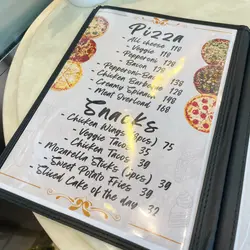 Pizza
- All cheese 110
- Veggie 110
- Pepperoni
- Bacon 110
- Pepperoni-Bacon
- Chicken Barbecue 130
- Creamy Spinach 120
- Meat Overload 160
Snacks
- Chicken Wings (5pcs) 75
- Veggie Taco 35
- Chicken Tacos 39
- Mozarella Sticks (3pcs) 39
- Sweet Potato Fries 39
- Sliced Cake of the day 32